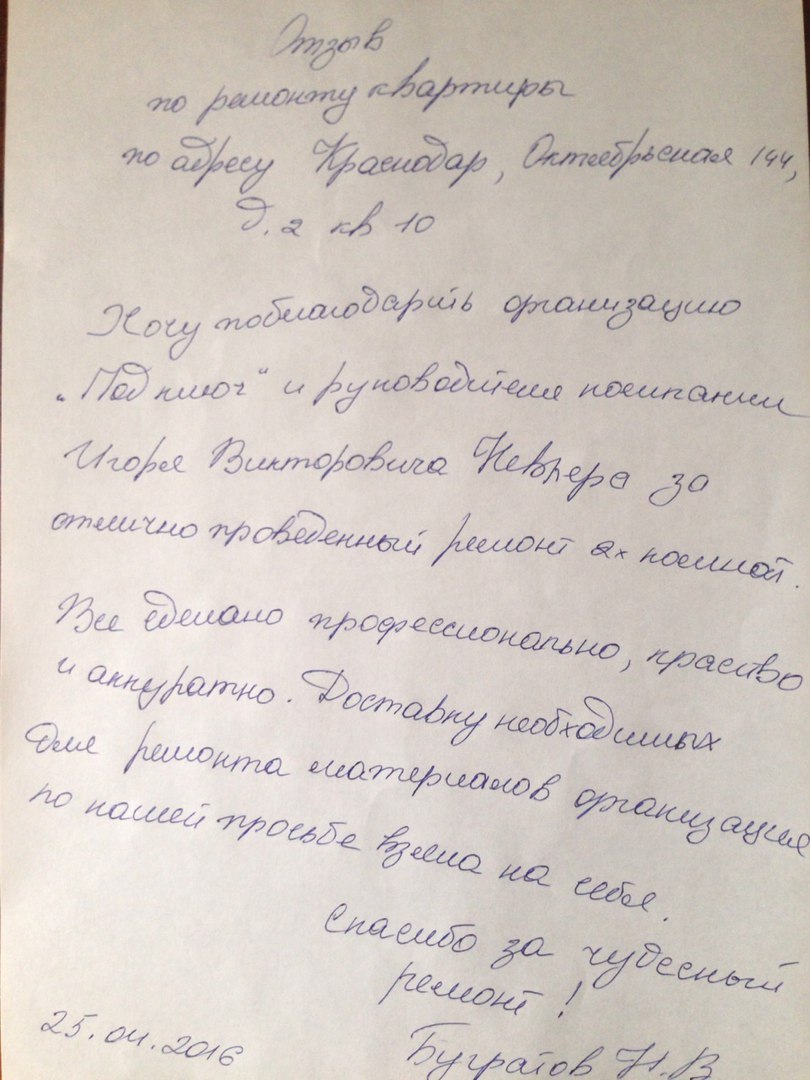 Отзыв
по ремонту квартиры
по адресу Краснодар, Октябрьская 144,
д. 2 кв 10
Хочу поблагодарить организацию
„Под ключ“ и руководителя компании
Игоря Викторовича за
отлично проведенный ремонт 2х комнат.
Все сделано профессионально, красиво
и аккуратно. Доставку необходимых
для ремонта материалов организация
по нашей просьбе взяла на себя.
Спасибо за чудесный
ремонт!
25.04.2016
Н.В